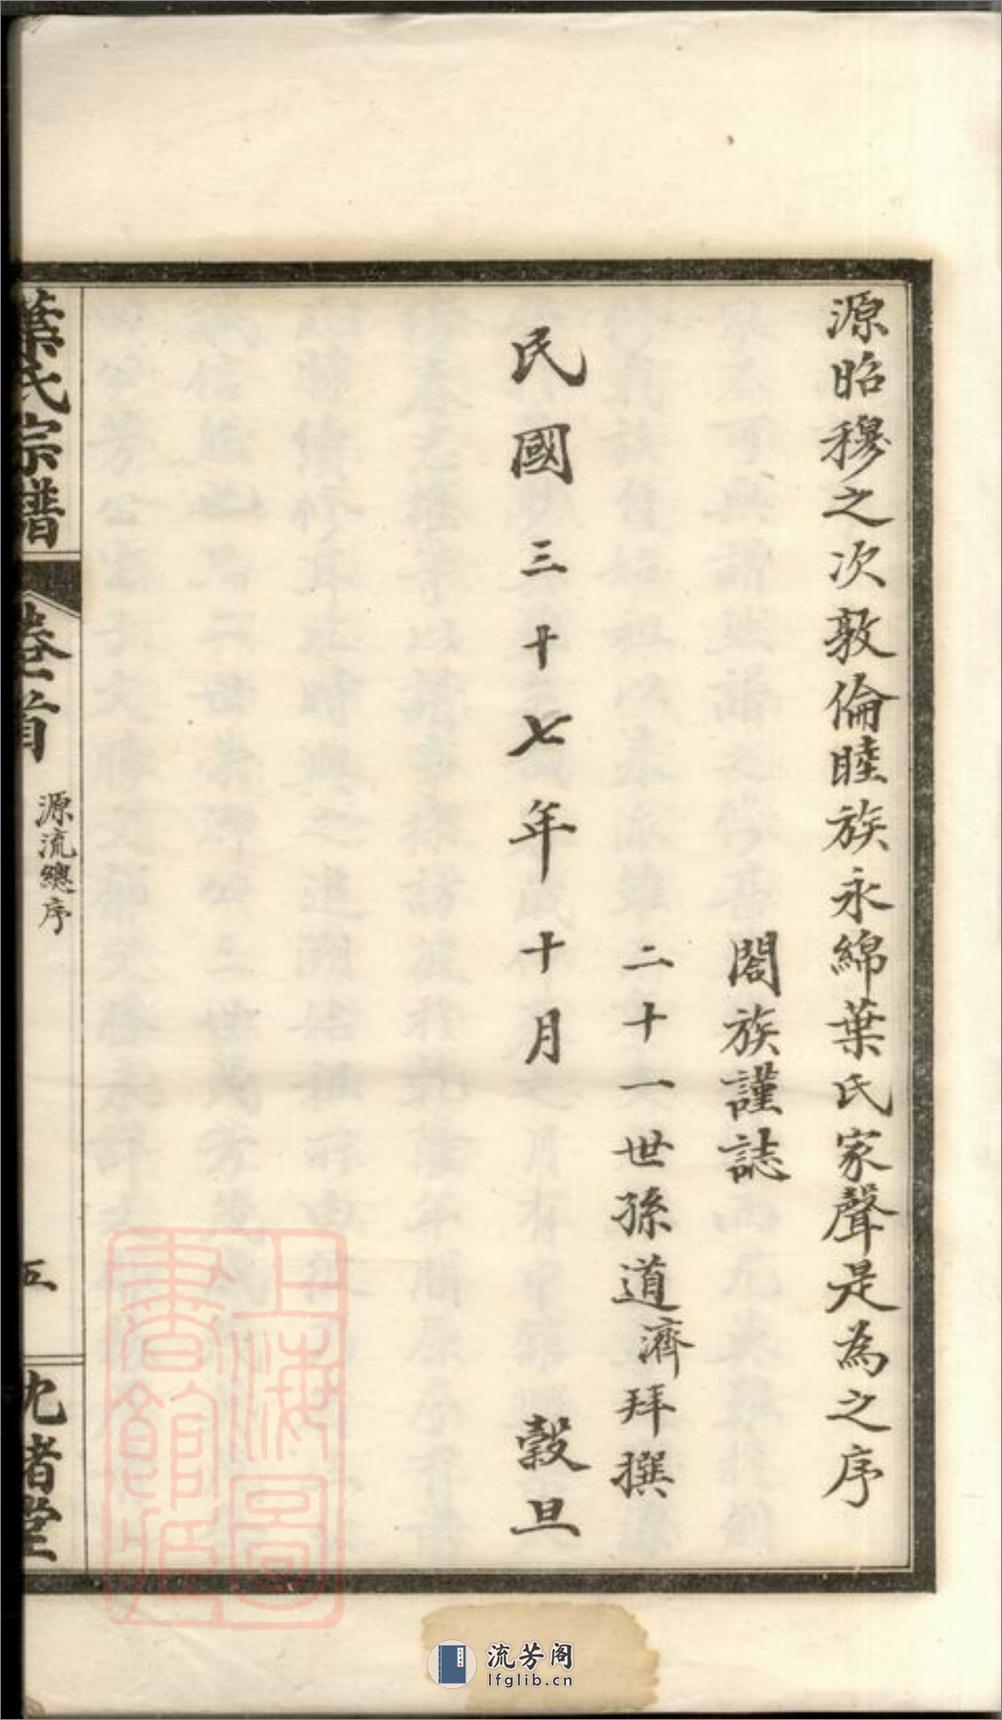 源昭穆之次敦倫睦族永綿葉氏家聲是為之序
閤族謹誌
二十一世孫道濟拜撰
民國三十七年十月 穀旦
葉氏宗譜
卷首
源流總序
五
堂
上海圖書館藏
流芳阁
lfglib.cn